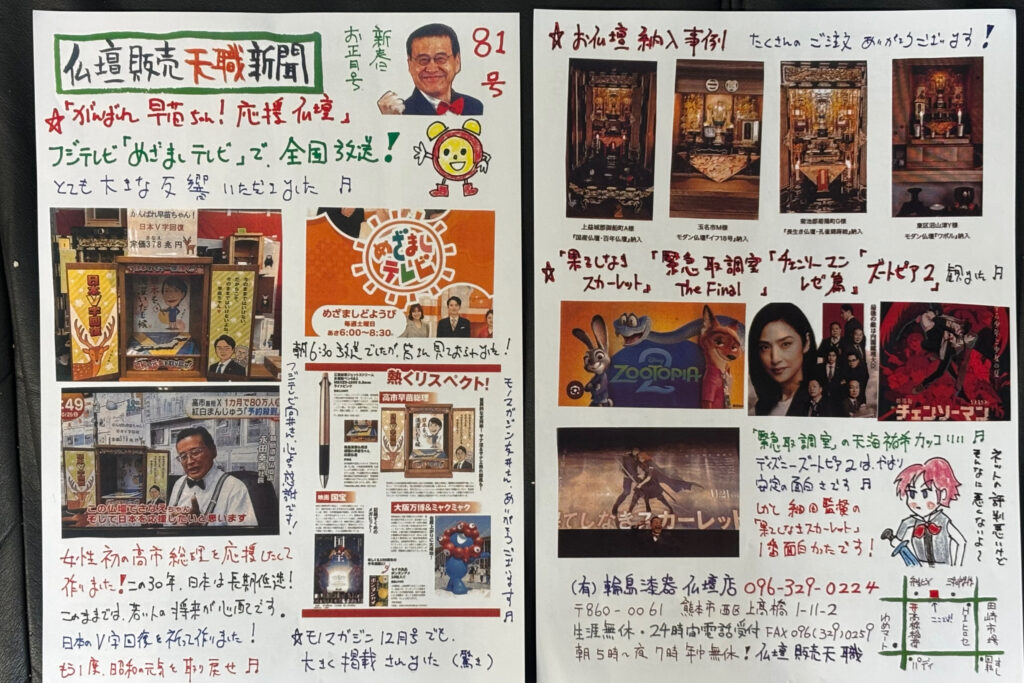 仏壇販売天職新聞
新春に
お正月号
81号
☆「がんばれ 早苗ちゃん! 応援仏壇」
フジテレビ「めざましテレビ」で、全国放送!
とても大きな反響いただきました♬
がんばれ早苗ちゃん!
日本V字回復
定価378兆円
日本V字回復
めざまし
テレビ
めざましどようび
毎週土曜日
あさ6:00~8:30
朝6:30放送でしたが、皆さん見ておられました!
:49
高市首相X1カ月で80万人
紅白まんじゅう「予約殺到
永田幸喜店長
この仏壇でさなえちゃん
そして日本を応援したいと思います
熱くリスペクト!
高市早苗総理
映画 国宝
大阪万博&ミャクミャク
モノマガジン桜井さん、ありがとうございます♬
女性初の高市総理を応援したくて
作りました!この30年、日本は長期低迷!
このままでは、若い人の将来が心配です。
日本のV字回復を祈って作りました!
もう1度、昭和の元気を取り戻せ♬
☆モノマガジン12月号でも、
大きく掲載されました(驚き)
☆お仏壇納入事例 たくさんのご注文ありがとうございます!
上益城郡御船町A様
「国産仏壇・百年仏壇」納入
玉名市M様
モダン仏壇「イフ18号」納入
菊池郡菊陽町G様
「長生き仏壇・孔雀錦蒔絵」納入
東区沼山津Y様
モダン仏壇「ワポル」納入
☆「果てしなきスカーレット」「緊急取調室 The Final」「チェンソーマン レゼ篇」「ズートピア2」観ました♬
Disney
ZOOTOPIA
2
チェンソーマン
てしなきスカーレット
「緊急取調室」の天海祐希カッコいい♬
ディズニーズートピア2は、やはり
安定の面白さです♬
しかし細田監督の
「果てしなきスカーレット」
1番面白かったです!
ネットの評判悪いけど
そんなに悪くないよ~
(有)輪島漆器仏壇店 096-329-0224
〒860-0061 熊本市西区上高橋1-11-2
生涯無休・24時間電話受付 FAX096(329)0259
朝5時~夜7時年中無休!仏壇販売天職
ここだよ!
田崎市場
ゆめマート